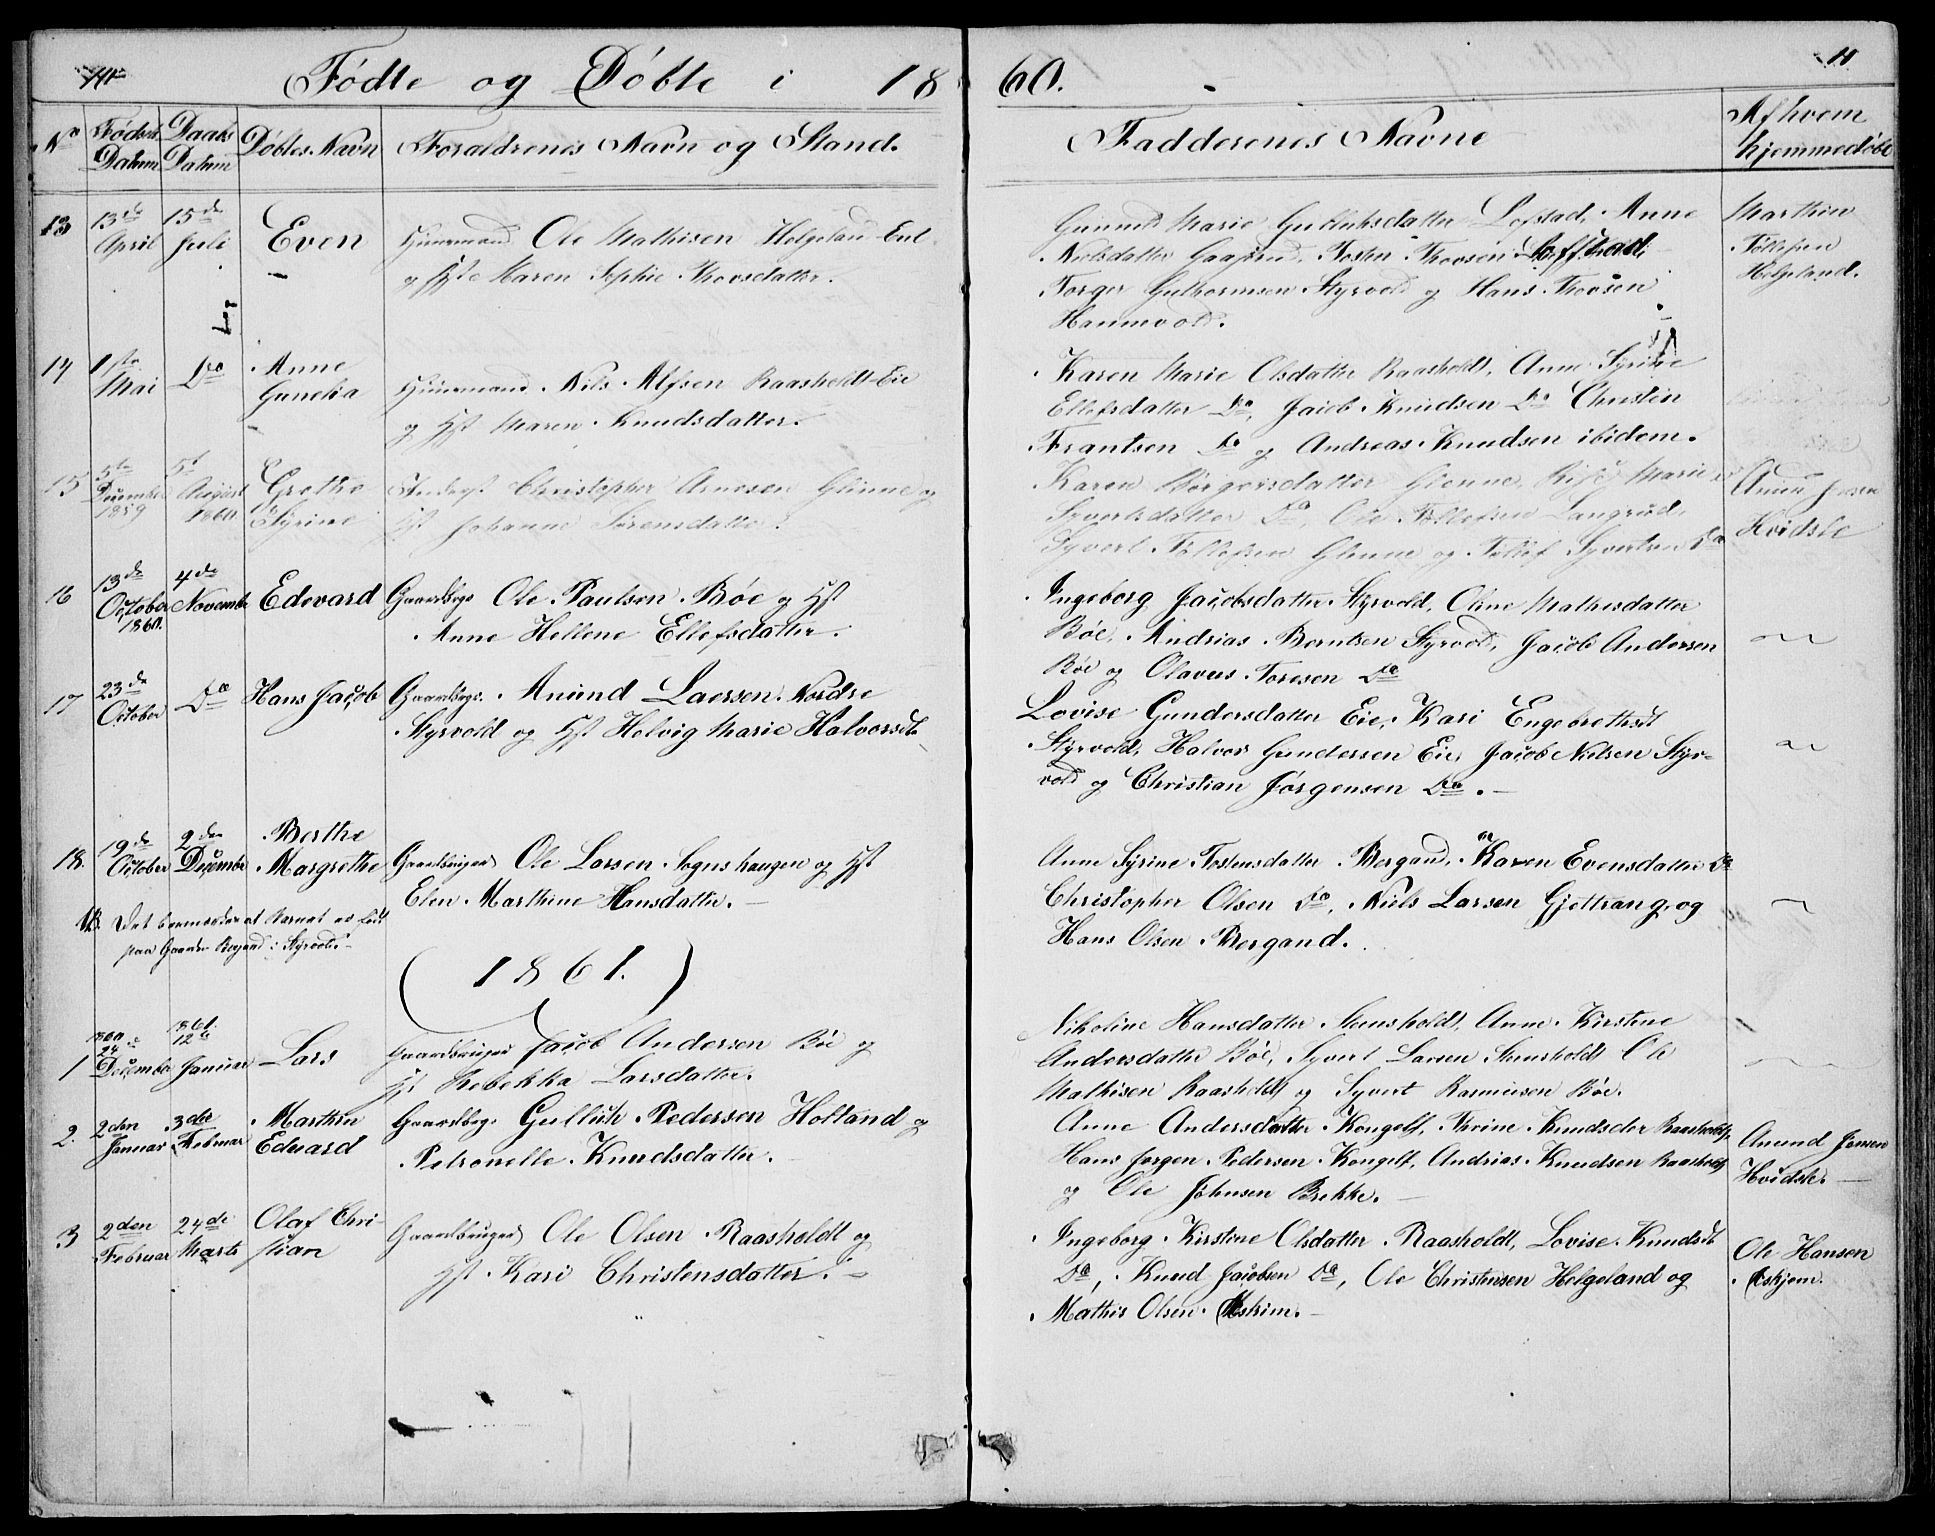 Fødte og Døbte i 1860.
11
No
Fødsels Datum
Daabs Datum
Døbtes Navn
Forældrenes Navn og Stand.
Fadderenes Navne
Af hvem hjemmedøbt
13
13de April
15de Juli
Even
Huusmand Ole Mathisen Helgeland Eie
og Hst Maren Sophie Thovsdatter.
Gunnild Marie Gulliksdatter Lofstad, Anne
Nielsdatter Tosten Thovsen Loffstad,
Torger Guttormsen Styrvold og Hans Thovsen
Hammvold.
Marthin
Tollefsen
Helgeland.
14
1ste Mai
Do
Anne
Gunelia
Huusmand Nils Alfsen Raasholdt Eie
og Hst Maren Knudsdatter.
Karen Marie Olsdatter Raasholdt, Anne Syrine
Ellefsdatter Do, Jacob Knudsen Do Christin
Frantsen Do og Andreas Knudsen ibidem.
15
5te December 1859
5t August 1860
Grethe
Syrine
Christopher Arnesen Glenne og
Hst Johanne Sørensdatter.
Karen Børgersdatter Glenne, Marie
Syvertsdatter Do, Ole Tollefsen Langrud,
Syvert Tollefsen Glenne og Tollef Syvertsen Do
Anun Jensen
Hvidste
16
13de October 1860.
4de Novembr
Edevard
Gaardbrgs Ole Paulsen Bøe og Hst
Anne Hellene Ellefsdatter.
Ingeborg Jacobsdatter Styrvold, Oline Mathisdatter
Bøe, Andrias Berntsen Styrvold, Jacob Andersen
Bøe og Olavus Toresen Do
17
23de October
Do
Hans Jacob
Gaardbrgs. Anund Larssen Nordre
Styrvold og Hst Helvig Marie Halvorsdt
Lovise Gundersdatter Eie, Kari Engebrethsdt
Styrvold, Halvor Gundersen Eie, Jacob Nielsen Styr-
vold og Christian Jørgensen Do.
18
19de October
2den Decembr
Berthe
Margrethe
Gaardbruger Ole Larsen Sognshaugen og Hst
Elen Marthine Hansdatter.
Anne Syrine Tostensdatter Bergand, Karen Evensdatter Do
Christopher Olsen Do, Niels Larsen Gjettrang, og
Hans Olsen Bergand.
NB. Det bemærkes at Barnet er født
paa Gaarden Bergand i Styrvold.
(1861.)
1
1860 24de Decembr
1861 12te Januar
Lars
Gaardbruger Jacob Andersen Bøe og
Hst Rebekka Larsdatter.
Nikoline Hansdatter Stensholdt, Anne Kirstene
Andersdatter Bøe, Syvert Larsen Stensholdt Ole
Mathisen Raasholdt og Syvert Rasmusen Bøe.
2.
2den Januar
3die Februar
Marthin
Eduard
Gaardbrgr Gullik Pedersen Holtand og
Petronelle Knudsdatter.
Anne Andersdatter Kongelf, Thrine Knudsdtr Raasholdt,
Hans Jørgen Pedersen Kongelf, Andrias Knudsen Raasholdt
og Ole Johnsen Bekke.
Anund Jensen
Hvidste.
3
2den Februar
24de Marts
Olaf Chri-
stian
Gaardbruger Ole Olsen Raasholdt og
Hst Kari Christensdatter.
Ingeborg Kirstene Olsdatter Raasholdt, Lovise Knudsdt
Do, Knud Jacobsen Do, Ole Christensen Helgeland og
Mathis Olsen Askim.
Ole Hansen
Askjem.